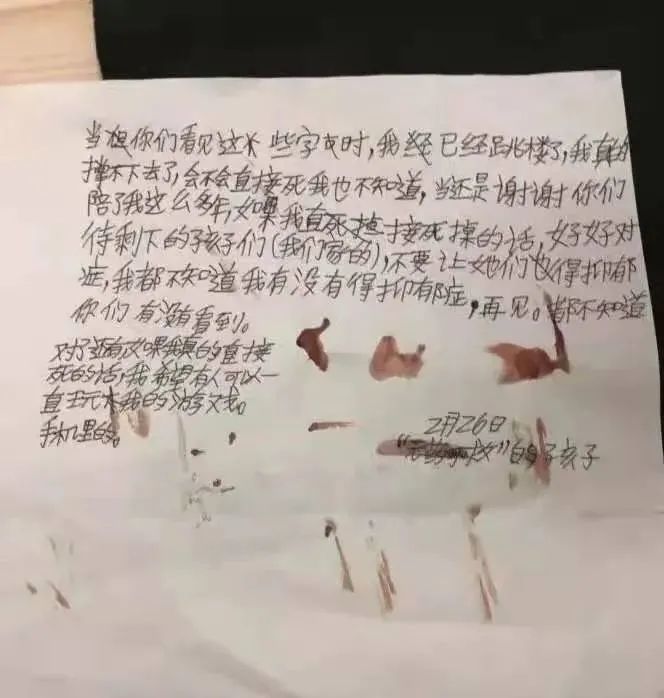 当你们看见这些字时,我已经跳楼了,我真的
撑不下去了,会不会直接死我也不知道,当还是谢谢你们
陪了我这么多年,如果我直接死掉的话,好好对
待剩下的孩子们(我们家的),不要让她们也得抑郁
症,我都不知道我有没有得抑郁症,再见。都不知道
你们有没有看到。
对了还有如果我真的直接
死的话,我希望有人可以一
直玩我的游戏。
手机里的。
2月26日
“救”的孩子